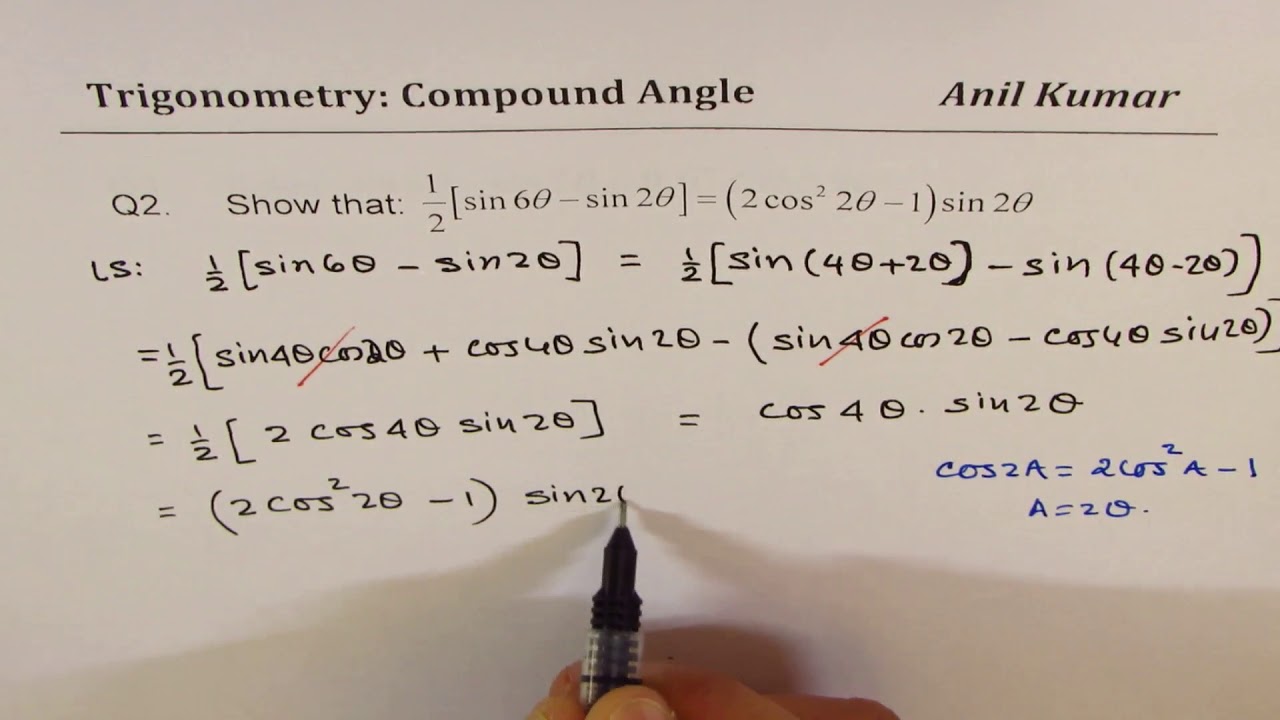 Trigonometry: Compound Angle Anil Kumar
Q2. Show that: 1/2 [sin 6θ − sin 2θ] = (2 cos² 2θ − 1) sin 2θ
LS: 1/2 [sin6θ − sin2θ] = 1/2 [sin(4θ+2θ) − sin(4θ-2θ)]
= 1/2 [sin4θcos2θ + cos4θ sin2θ − (sin4θcos2θ − cos4θ sin2θ)]
= 1/2 [2 cos4θ sin2θ] = cos4θ . sin2θ
cos2A = 2cos²A − 1
= (2cos²2θ − 1) sin2(
A = 2θ.